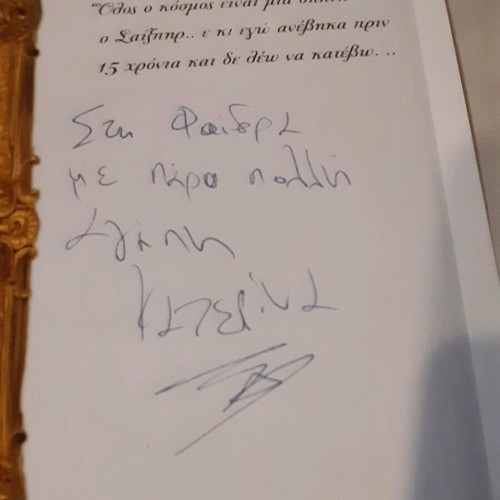 "Όλος ο κόσμος είναι μια
ο Σαίξπηρ.. ε κι εγώ ανέβηκα πριν
15 χρόνια και δε λέω να κατέβω. ..
Στη Φαίδρα
με πάρα πολλή
αγάπη
Κατερίνα